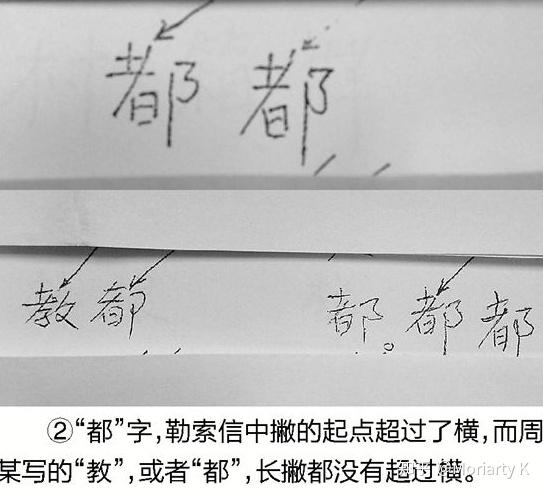 都 都
教 都 都。都 都
②“都”字,勒索信中撇的起点超过了横,而周
某写的“教”,或者“都”,长撇都没有超过横。
知乎 @Moriarty K